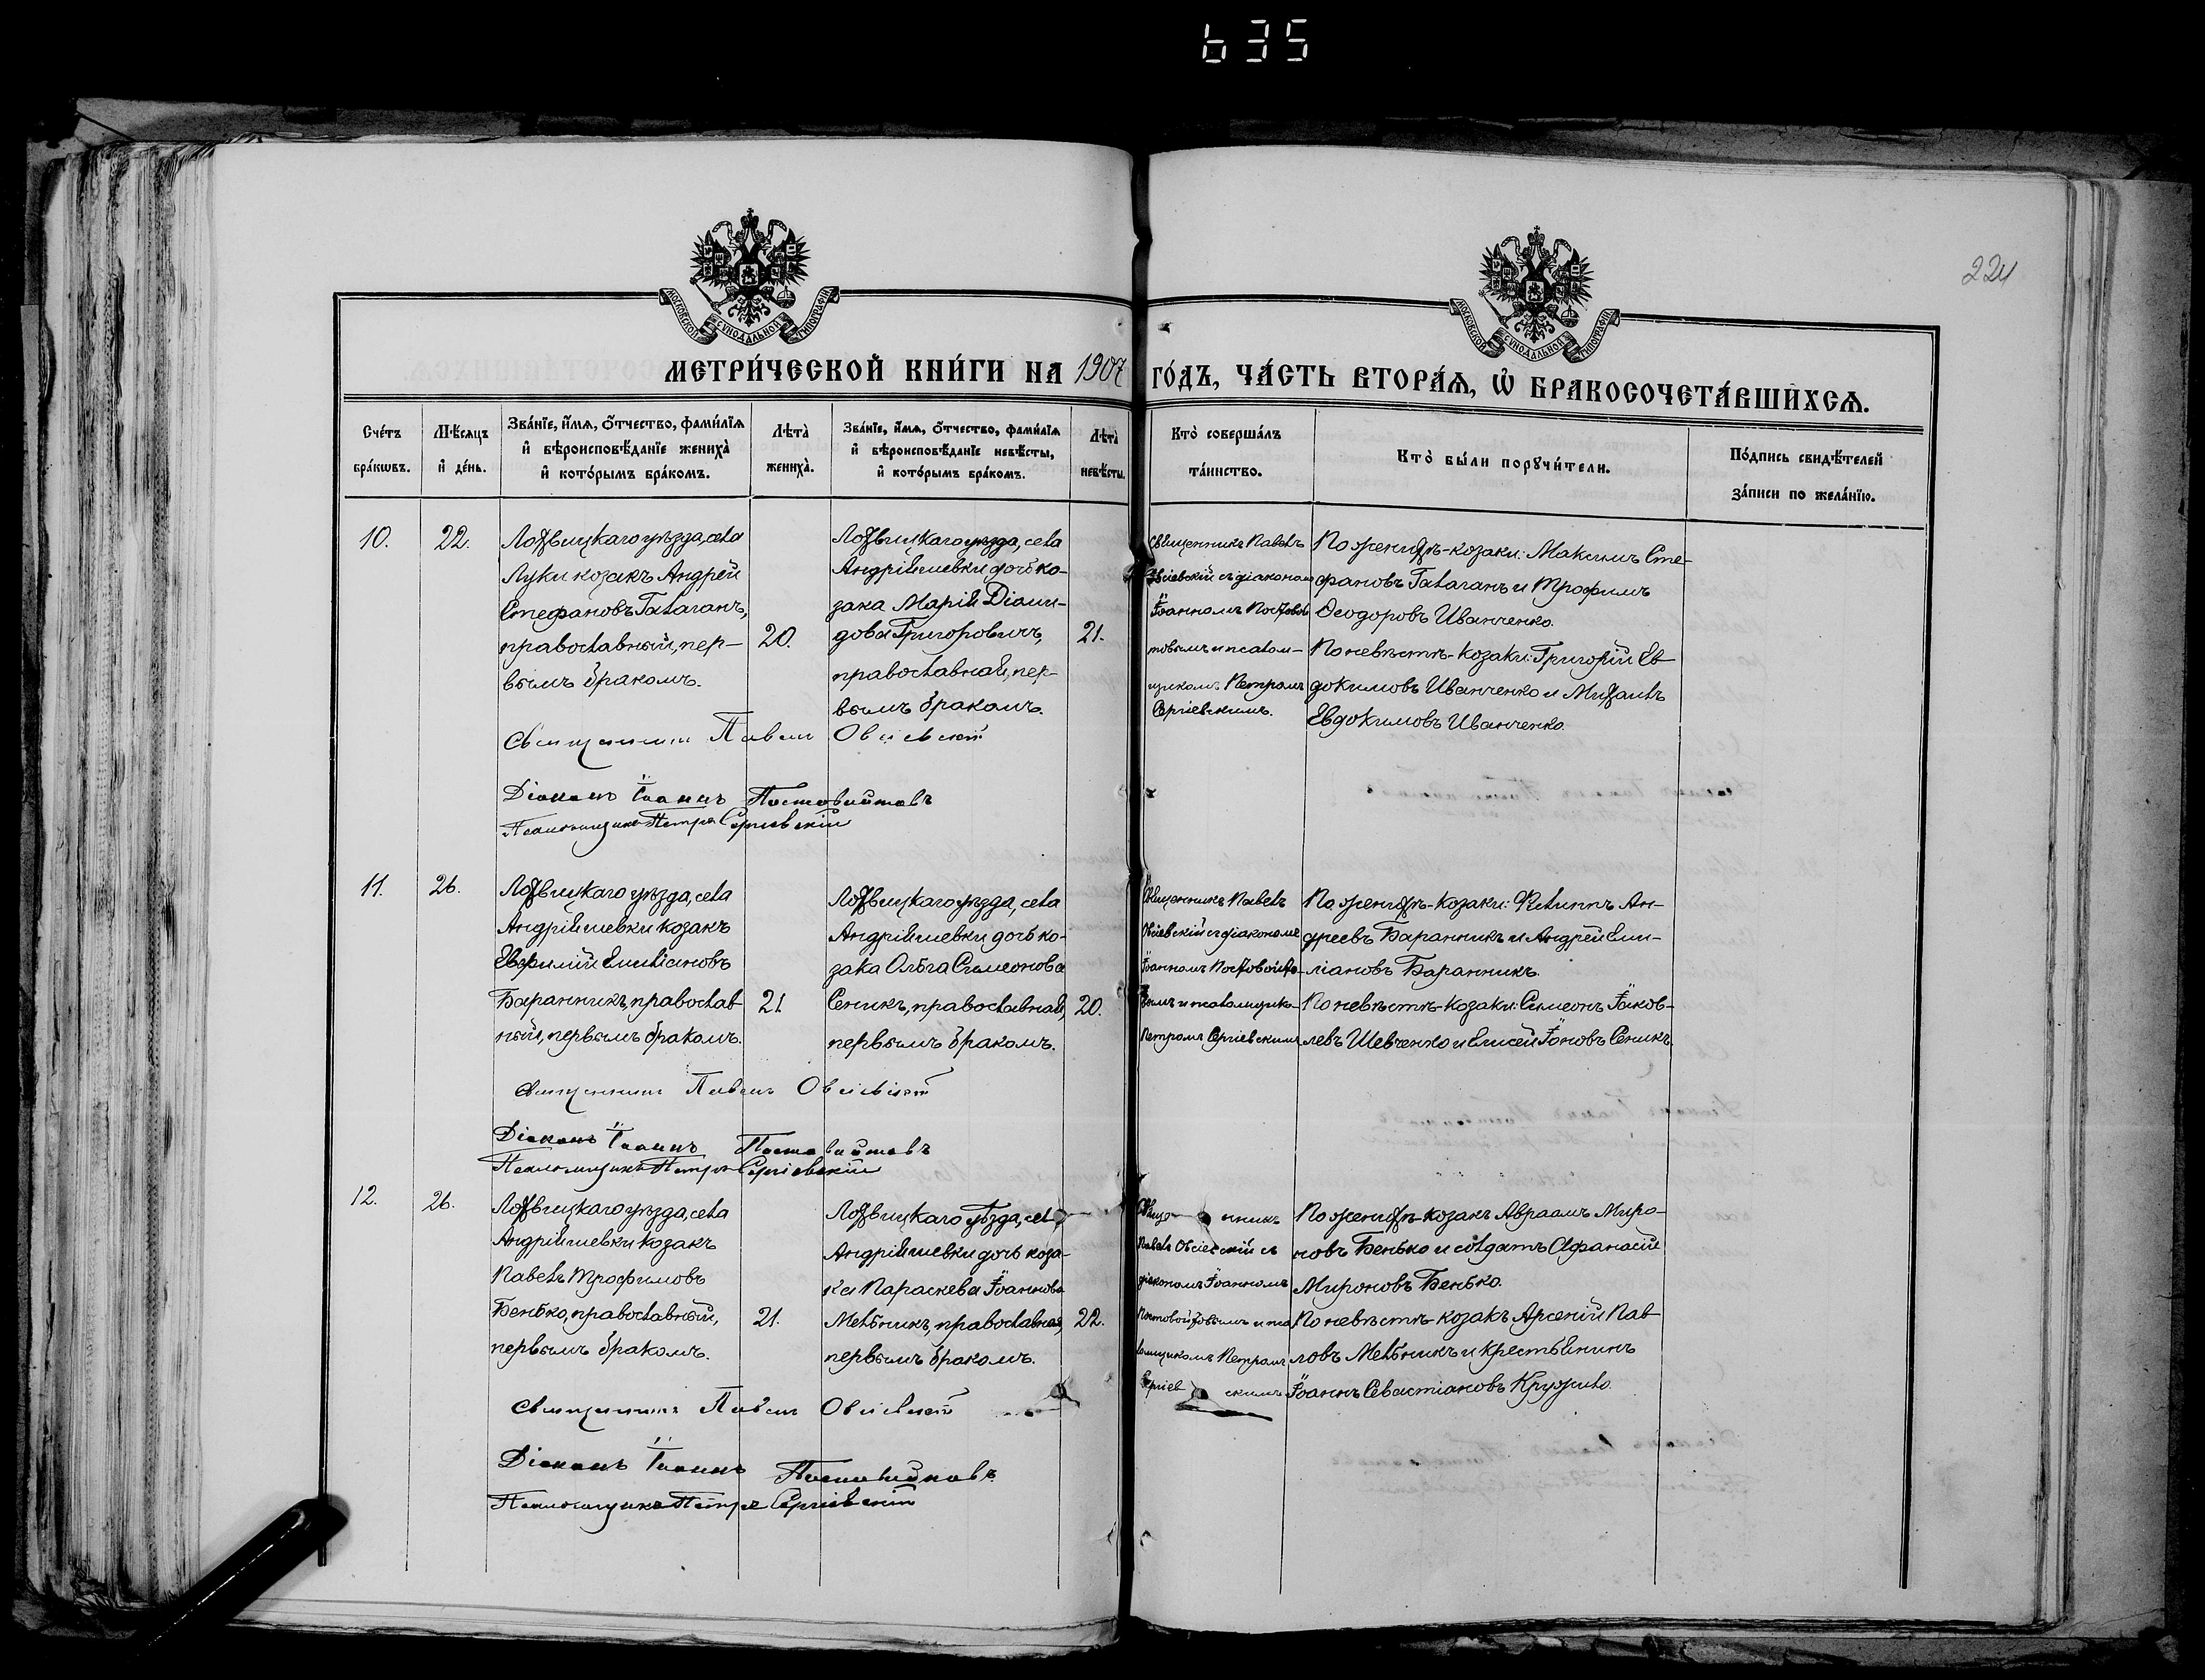 635
224
МОСКОВСКОЙ СѴНОДАЛЬНОЙ ТИПОГРАФІИ
МОСКОВСКОЙ СѴНОДАЛЬНОЙ ТИПОГРАФІИ
МЕТРИ́ЧЕСКОЙ КНИ́ГИ НА 1907 ГО́ДЪ, ЧА́СТЬ ВТОРА́Ѧ, Ѡ҆ БРАКОСОЧЕТА́ВШИХСѦ.
Сче́тъ
бра́кѡвъ.
Мѣ́сѧцъ
и҆ де́нь.
Зва́нїе, и҆́мѧ, ѻ҆́тчество, фами́лїѧ
и҆ вѣроисповѣ́данїе жениха̀
и҆ кото́рымъ бра́комъ.
Лѣта̀
жениха̀.
Зва́нїе, и҆́мѧ, ѻ҆́тчество, фами́лїѧ
и҆ вѣроисповѣ́данїе невѣ́сты,
и҆ кото́рымъ бра́комъ.
Лѣта̀
невѣ́сты.
Кто̀ соверша́лъ
та́инство.
Кто̀ бы́ли порꙋчи́тели.
По́дпись свидѣ́телей
за́писи по жела́нїю.
10.
22.
Лохвицкаго уѣзда, села
Луки козакъ Андрей
Стефановъ Галаганъ,
православный, пер-
вымъ бракомъ.
20.
Лохвицкаго уѣзда, села
Андріяшевки дочь ко-
зака Марія Діоми-
дова Григоровичъ,
православная, пер-
вымъ бракомъ.
21.
Священникъ Павелъ
Овсіевскій съ діакономъ
Іоанномъ Постовой-
товымъ и псалом-
щикомъ Петромъ
Сергіевскимъ.
По женихѣ - козаки: Максимъ Сте-
фановъ Галаганъ и Трофимъ
Ѳеодоровъ Иванченко.
По невѣстѣ - козаки: Григорій Ев-
докимовъ Иванченко и Михаилъ
Евдокимовъ Иванченко.
Священникъ Павелъ Овсіевскій
Діаконъ Іоаннъ Постовойтовъ
Псаломщикъ Петръ Сергіевскій
11.
26.
Лохвицкаго уѣзда, села
Андріяшевки козакъ
Евфимій Емиліановъ
Баранникъ, православ-
ный, первымъ бракомъ.
21.
Лохвицкаго уѣзда, села
Андріяшевки дочь ко-
зака Ольга Симеонова
Сеникъ, православная,
первымъ бракомъ.
20.
Священникъ Павелъ
Овсіевскій съ діакономъ
Іоанномъ Постовойто-
вымъ и псаломщико-
Петромъ Сергіевскимъ
По женихѣ - козаки: Филиппъ Ан-
дреевъ Баранникъ и Андрей Еми-
ліановъ Баранникъ.
По невѣстѣ - козаки: Симеонъ Іаков-
левъ Шевченко и Елисей Іоновъ Сеникъ.
Священникъ Павелъ Овсіевскій
Діаконъ Іоаннъ Постовойтовъ
Псаломщикъ Петръ Сергіевскій
12.
26.
Лохвицкаго уѣзда, села
Андріяшевки козакъ
Павелъ Трофимовъ
Бенько, православный,
первымъ бракомъ.
21.
Лохвицкаго уѣзда, села
Андріяшевки дочь коза-
ка Параскева Іоаннова
Мельникъ, православная,
первымъ бракомъ.
22.
Священникъ
Павелъ Овсіевскій съ
діакономъ Іоанномъ
Постовойтовымъ и пса-
ломщикомъ Петромъ
Сергіевскимъ
По женихѣ - козакъ Авраамъ Миро-
новъ Бенько и солдатъ Афанасій
Мироновъ Бенько.
По невѣстѣ - козакъ Арсеній Пав-
ловъ Мельникъ и крестьянинъ
Іоаннъ Севастіановъ Кружило.
Священникъ Павелъ Овсіевскій
Діаконъ Іоаннъ Постовойтовъ
Псаломщикъ Петръ Сергіевскій